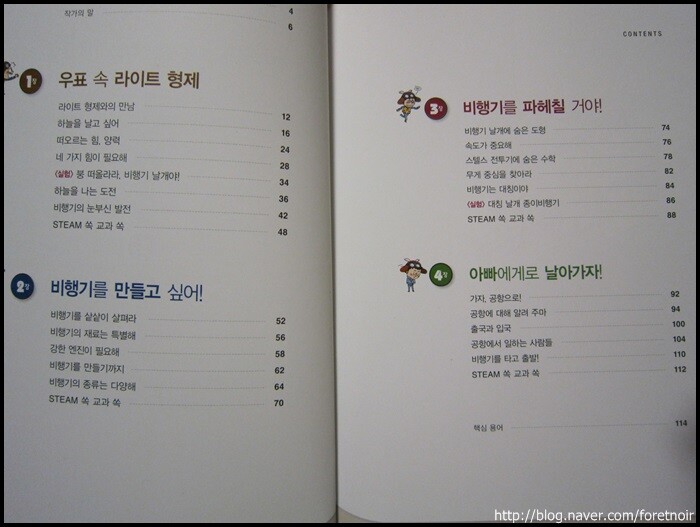 작가의 말 4
6
1장 우표 속 라이트 형제
라이트 형제와의 만남 12
하늘을 날고 싶어 16
떠오르는 힘, 양력 24
네 가지 힘이 필요해 28
<실험> 붕 떠올라라, 비행기 날개야! 34
하늘을 나는 도전 36
비행기의 눈부신 발전 42
STEAM 쏙 교과 쏙 48
2장 비행기를 만들고 싶어!
비행기를 샅샅이 살펴라 52
비행기의 재료는 특별해 56
강한 엔진이 필요해 58
비행기를 만들기까지 62
비행기의 종류는 다양해 64
STEAM 쏙 교과 쏙 70
CONTENTS
3장 비행기를 파헤칠 거야!
비행기 날개에 숨은 도형 74
속도가 중요해 76
스텔스 전투기에 숨은 수학 78
무게 중심을 찾아라 82
비행기는 대칭이야 84
<실험> 대칭 날개 종이비행기 86
STEAM 쏙 교과 쏙 88
4장 아빠에게로 날아가자!
가자, 공항으로! 92
공항에 대해 알려 주마 94
출국과 입국 100
공항에서 일하는 사람들 104
비행기를 타고 출발! 110
STEAM 쏙 교과 쏙 112
핵심 용어 114
http://blog.naver.com/foretnoir